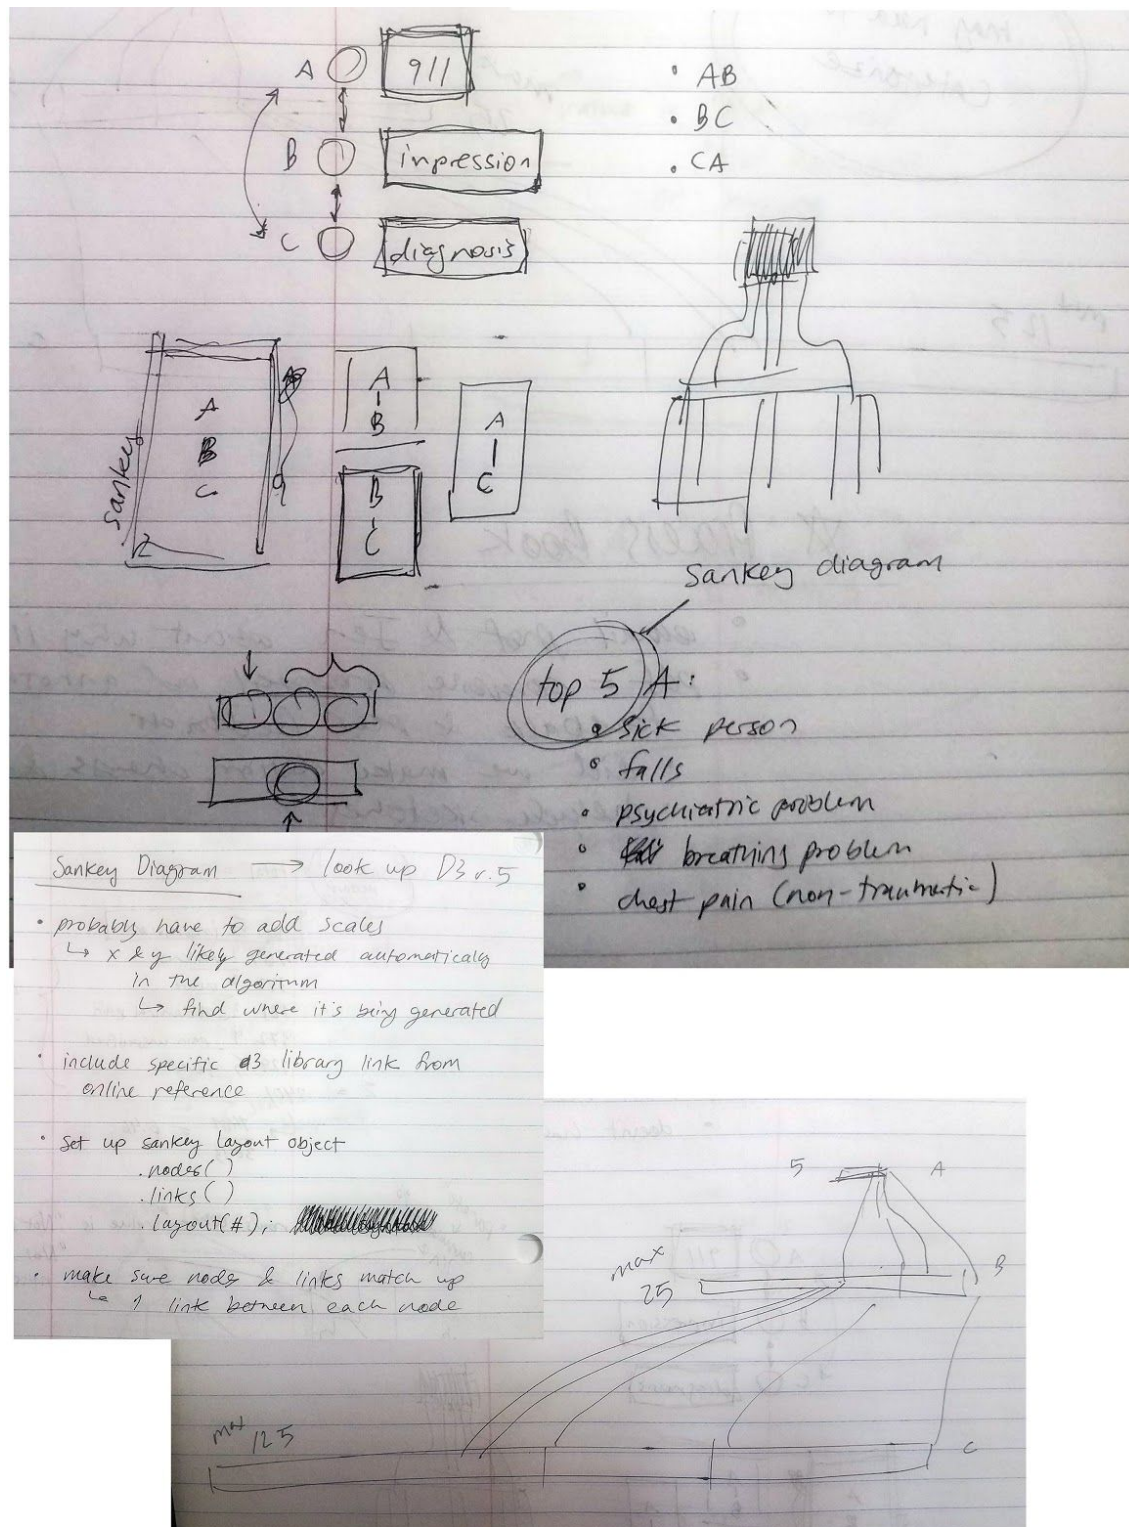 A
911
B
inpression
C
diagnosis
• AB
• BC
• CA
sankey
A
B
C
A
B
B
C
A
C
Sankey diagram
top 5 A:
• sick person
• falls
• psychiatric problem
• breathing problem
• chest pain (non-traumatic)
Sankey Diagram → look up D3 v.5
• probably have to add scales
↳ x & y likely generated automatically
in the algoritum
↳ find where it's being generated
• include specific d3 library link from
online reference
• Set up sankey layout object
.nodes()
.links()
.layout(#);
• make sure nodes & links match up
↳ 1 link between each node
5
A
max
25
B
max 125
C